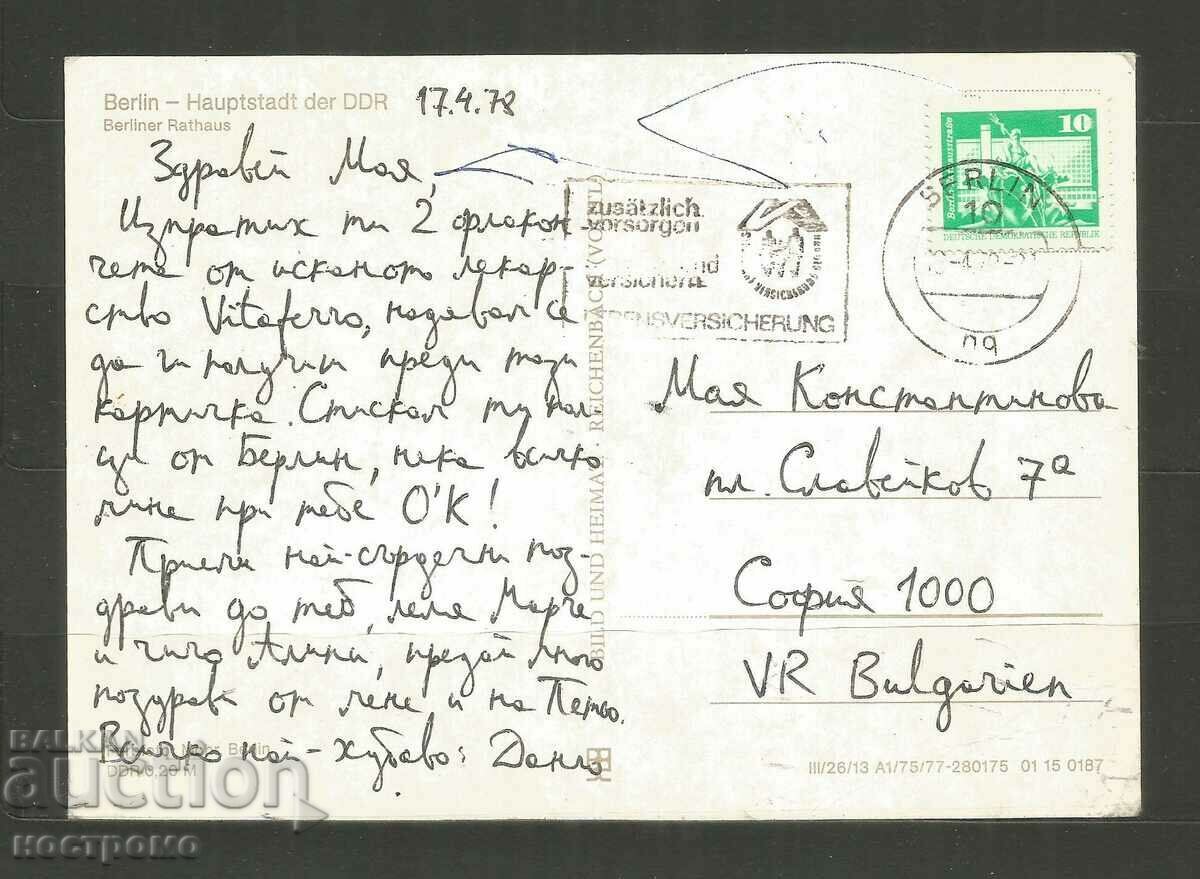 Berlin – Hauptstadt der DDR
Berliner Rathaus
17.4.78
Здравей Мая,
Изпратих ти 2 флакон
чета от исканото лекар-
ство Vitaferro, надявам се
да ги получиш преди тази
картичка. Стискам ти пал
ци от Берлин, нека всичко
мине при тебе О'К!
Приеми най-сърдечни поз-
драви до теб, леля Марче
и чичо Алини, предай много
поздрави от мене и на Петьо.
Всичко най-хубаво: Данчо
Berlin
DDR 0,20 M
BILD UND HEIMAT · REICHENBACH (VOGTL)
zusätzlich
vorsorgen
versichert
LEBENSVERSICHERUNG
10
DEUTSCHE DEMOKRATISCHE REPUBLIK
BERLIN
10
Мая Константинова
пл. Славейков 7а
София 1000
VR Bulgarien
III/26/13 A1/75/77-280175 01 15 0187
BALKAN
auction
костромо